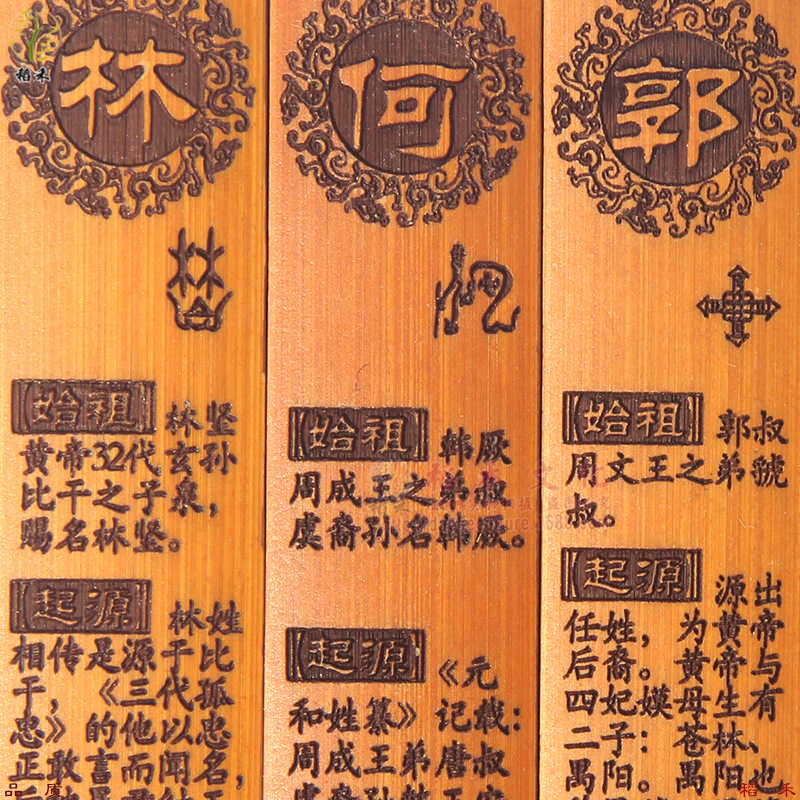 稻禾
林
始祖 林坚
黄帝32代玄孙
比干之子泉，
赐名林坚。
起源 林姓
相传是源于比
干，《三代孤
忠》的他以忠
正敢言而闻名，
何
始祖 韩厥
周成王之弟叔
虞裔孙名韩厥。
起源 《元
和姓纂》记载：
周成王弟唐叔
郭
始祖 郭叔
周文王之弟虢
叔。
起源 源出
任姓，为黄帝
后裔。黄帝与
四妃嫫母生有
二子：苍林、
禺阳。禺阳也
品质
稻禾